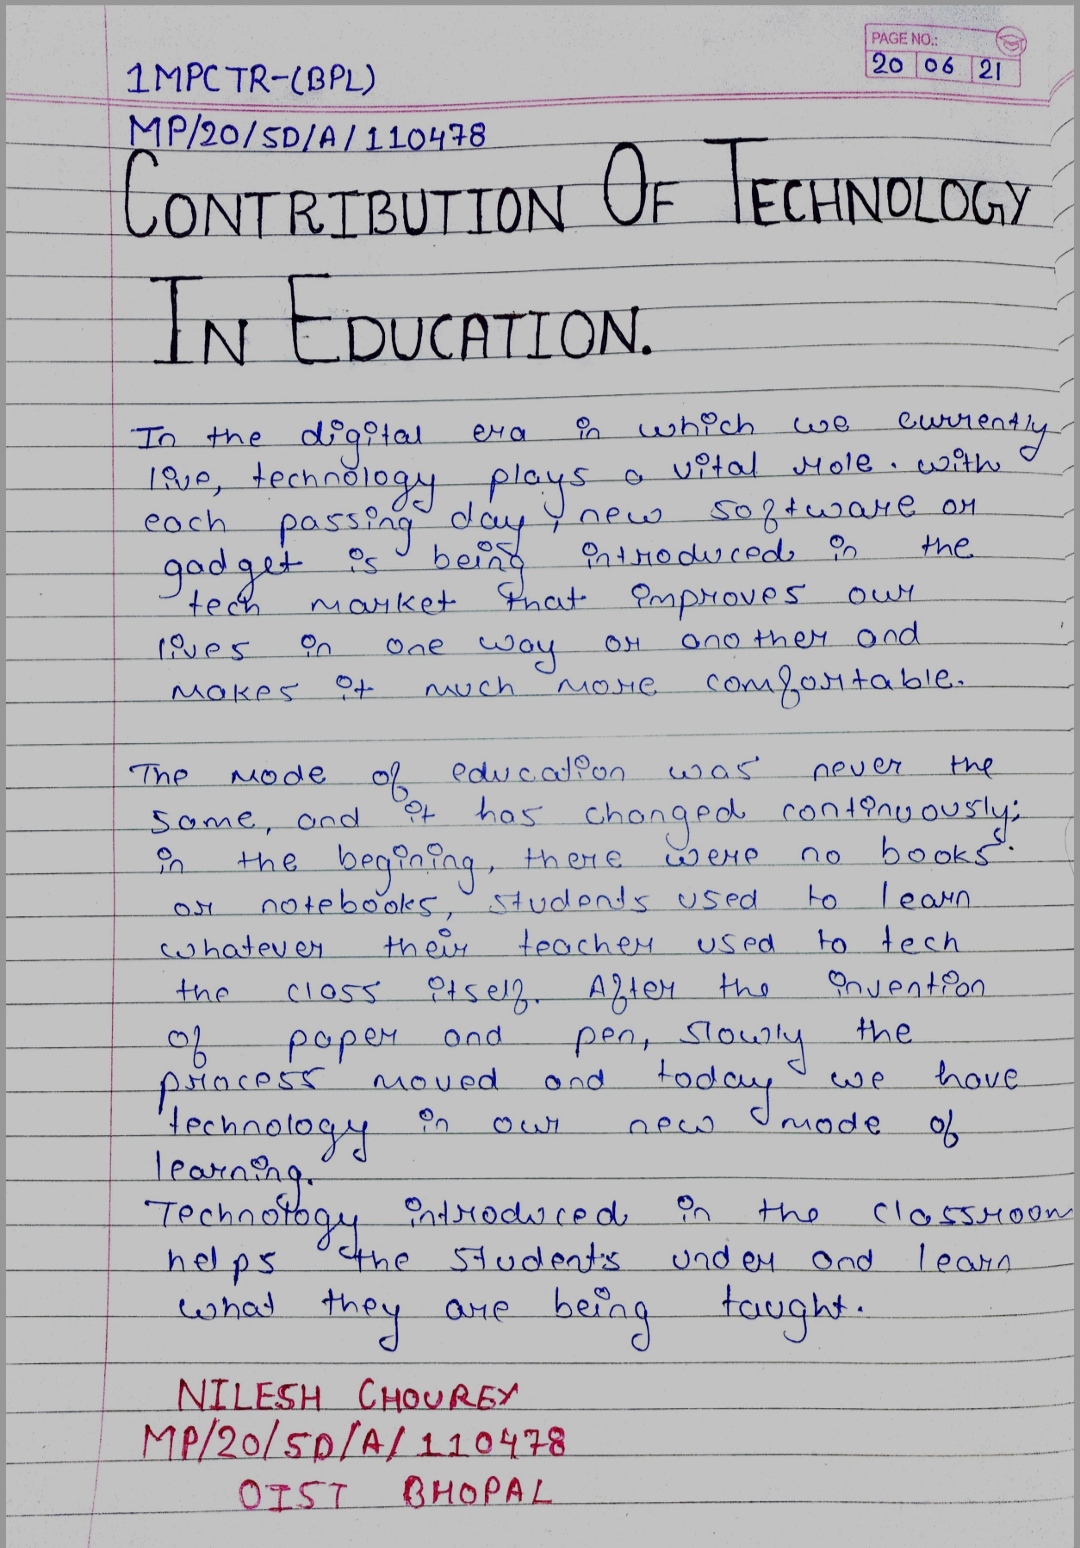 PAGE NO.:
20 06 21
1MPCTR-(BPL)
MP/20/SD/A/110478
CONTRIBUTION OF TECHNOLOGY
IN EDUCATION.
In the digital era in which we currently
live, technology plays a vital role. with
each passing day, new software or
gadget is being introduced in the
tech market that improves our
lives in one way or another and
makes it much more comfortable.
The mode of education was never the
same, and it has changed continuously;
in the begining, there were no books
or notebooks, students used to learn
whatever their teacher used to tech
the class itself. After the invention
of paper and pen, slowly the
process moved and today we have
technology in our new mode of
learning.
Technology introduced in the classroom
helps the students under and learn
what they are being taught.
NILESH CHOUREY
MP/20/SD/A/110478
OIST BHOPAL